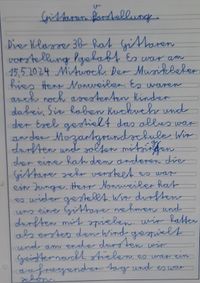 Gittaren forstellung
Die Klasse 3b hat Gittaren
vorstellung gehabt Es war am
15.5.2024. Mitwoch. Der Musiklehrer
hies Herr Nonweiler Es waren
auch noch asestenten Kinder
dabei. Sie haben Kuckucks und
der Esel gestielt das alles war
an der Mozartgrundschule Wir
durften und solten mitsingen
der eine hat dem anderen die
Gittare sehr verstelt es war
ein Junge. Herr Nonweiler hat
es wider gestelt Wir durften
uns eine Gittare nehmen und
durften mit spielen wir hatten
als erstes den Wind gespielt
und am ende dursten wir
Geisternacht stielen es war ein
aufregender tag und es war
schön.